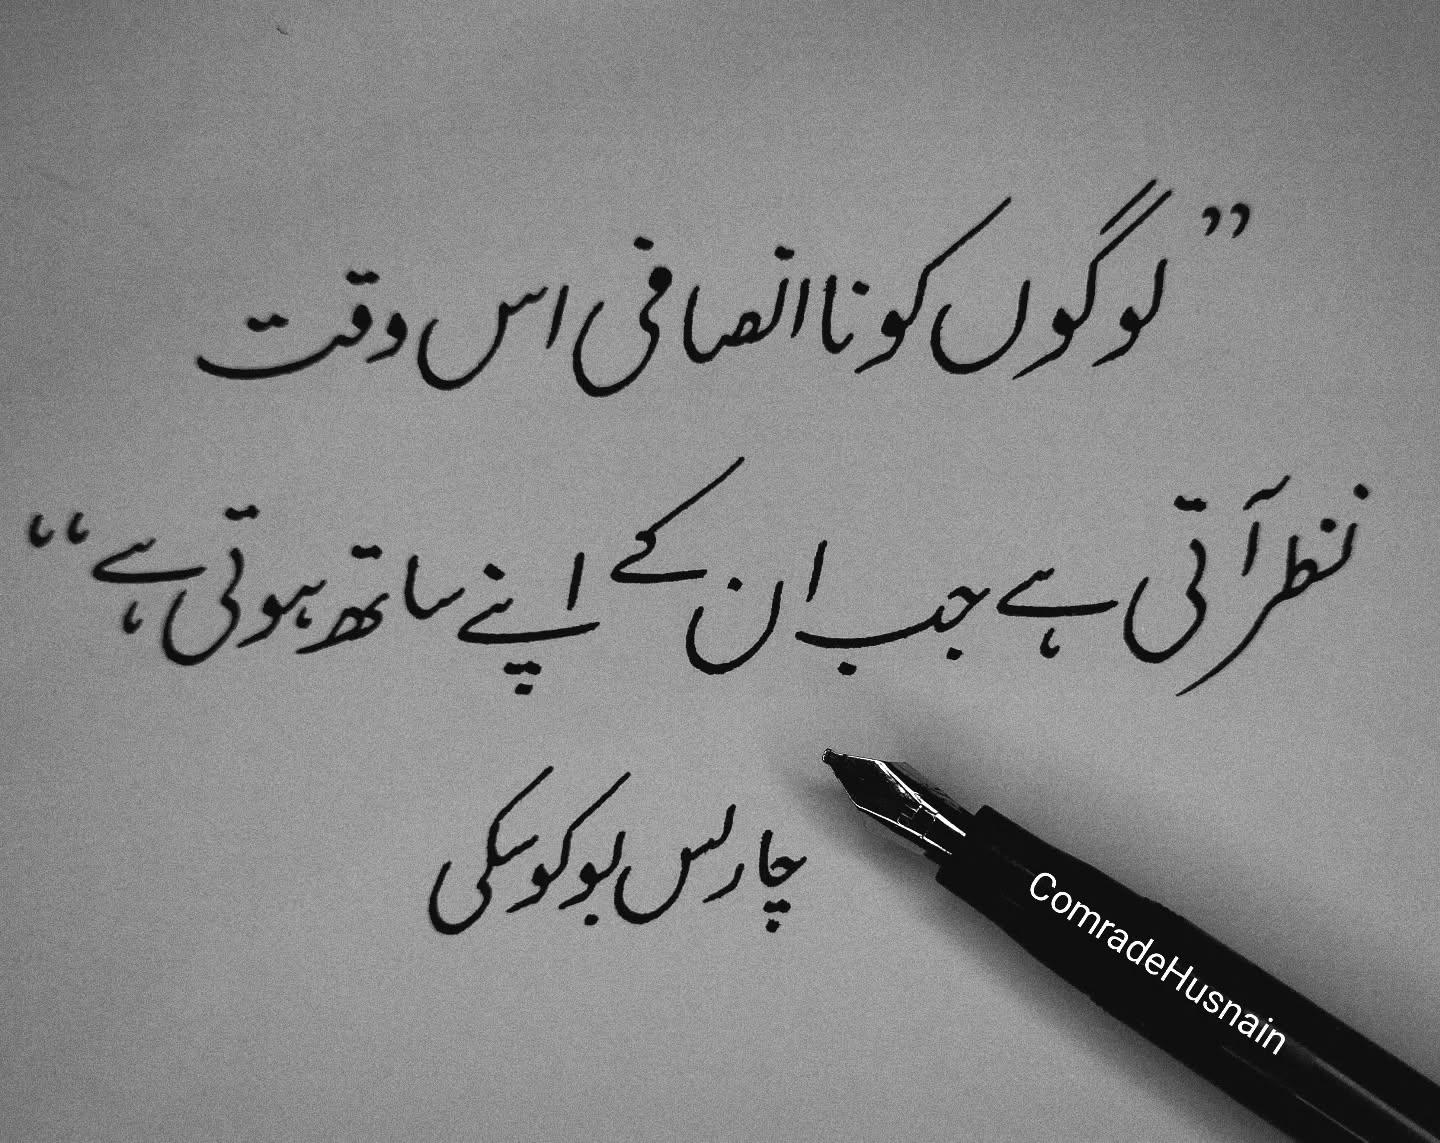 ”لوگوں کو ناانصافی اس وقت
نظر آتی ہے جب ان کے اپنے ساتھ ہوتی ہے“
چارلس بوکوسکی
ComradeHusnain